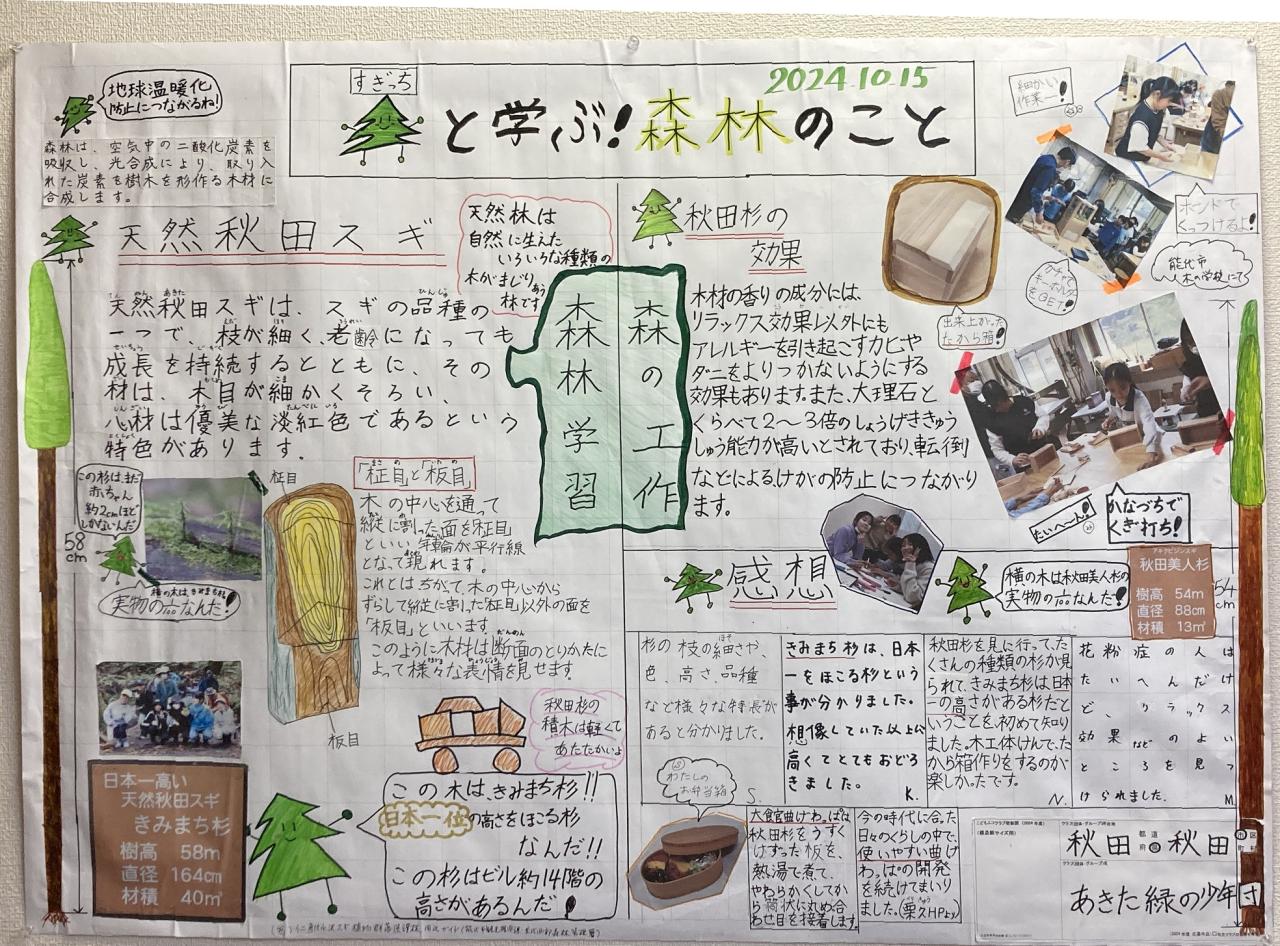 すぎっち
2024.10.15
と学ぶ!森林のこと
地球温暖化
防止につながるね!
森林は、空気中の二酸化炭素を
吸収し、光合成により、取り入
れた炭素を樹木を形作る木材に
合成します。
天然秋田スギ
天然林は
自然に生えた
いろいろな種類の
木がまじりあう
林です
天然秋田スギは、スギの品種の
一つで、枝が細く、老齢になっても
成長を持続するとともに、その
材は、木目が細かくそろい、
心材は優美な淡紅色であるという
特色があります。
森林学習
森の工作
この杉は、まだ
赤ちゃん
約2cmほど
しかないんだ
58
cm
横の木は、きみまち杉
実物の なんだ!
柾目
板目
「柾目」と「板目」
木の中心を通って
縦に割った面を「柾目」
といい年輪が平行線
となって現れます。
これとはちがって、木の中心から
ずらして縦に割った「柾目」以外の面を
「板目」といいます。
このように木材は断面のとりかたに
よって様々な表情を見せます。
秋田杉の
積木は軽くて
あたたかいよ
日本一高い
天然秋田スギ
きみまち杉
樹高 58m
直径 164cm
材積 40m³
この木は、きみまち杉!!
日本一位の高さをほこる杉
なんだ!!
この杉はビル約14階の
高さがあるんだ!
秋田杉の
効果
木材の香りの成分には、
リラックス効果以外にも
アレルギーを引き起こすカビや
ダニをよりつかないようにする
効果もあります。また、大理石と
くらべて2〜3倍のしょうげききゅう
しゅう能力が高いとされており、転倒
などによるけがの防止につながり
ます。
出来上がった
たから箱!
細かい
作業ー!
ボンドで
くっつけるよ!
能代市
木の学校にて
ガチャで
キーホルダー
をGET!
たいへーん!
かなづちで
くぎ打ち!
感想
横の木は秋田美人杉の
実物の なんだ!
アキタビジンスギ
秋田美人杉
樹高 54m
直径 88cm
材積 13m³
54
cm
杉の枝の細さや、
色、高さ、品種
など様々な特長が
あると分かりました。
S.
きみまち杉は、日本
一をほこる杉という
事が分かりました。
想像していた以上に
高くてとてもおどろ
きました。
K.
秋田杉を見に行って、た
くさんの種類の杉が見
られて、きみまち杉は日本
一の高さがある杉だと
いうことを、初めて知り
ました。木工体けんで、た
から箱作りをするのが
楽しかったです。
N.
花粉症の人は
たいへんだけ
ど、リラックス
効果などのよい
ところを見つ
けられました。
M
わたしの
お弁当箱
大館曲げわっぱは
秋田杉をうすく
けずった板を、
熱湯で煮て、
やわらかくしてか
ら筒状に丸め合
わせ目を接着します。
今の時代に合った
日々のくらしの中で、
使いやすい曲げ
わっぱの開発
を続けてまいり
ました。(栗久HPより)
秋田 都道府県 秋田 市区
あきた緑の少年